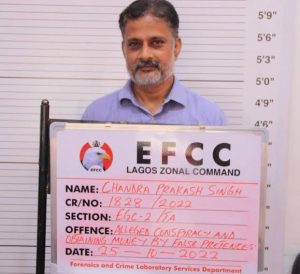 5'9"
5'6"
5'3"
5'0"
4'9"
4'6"
EFCC
EFCC
LAGOS ZONAL COMMAND
NAME: CHANDRA PRAKASH SINGH
CR/NO: 1828/2022
SECTION: EGC-2/TA
OFFENCE: ALLEGED CONSPIRACY AND
OBTAINING MONEY BY FALSE PRETENCES
DATE: 25-10-2022
Forensics and Crime Laboratory Services Department